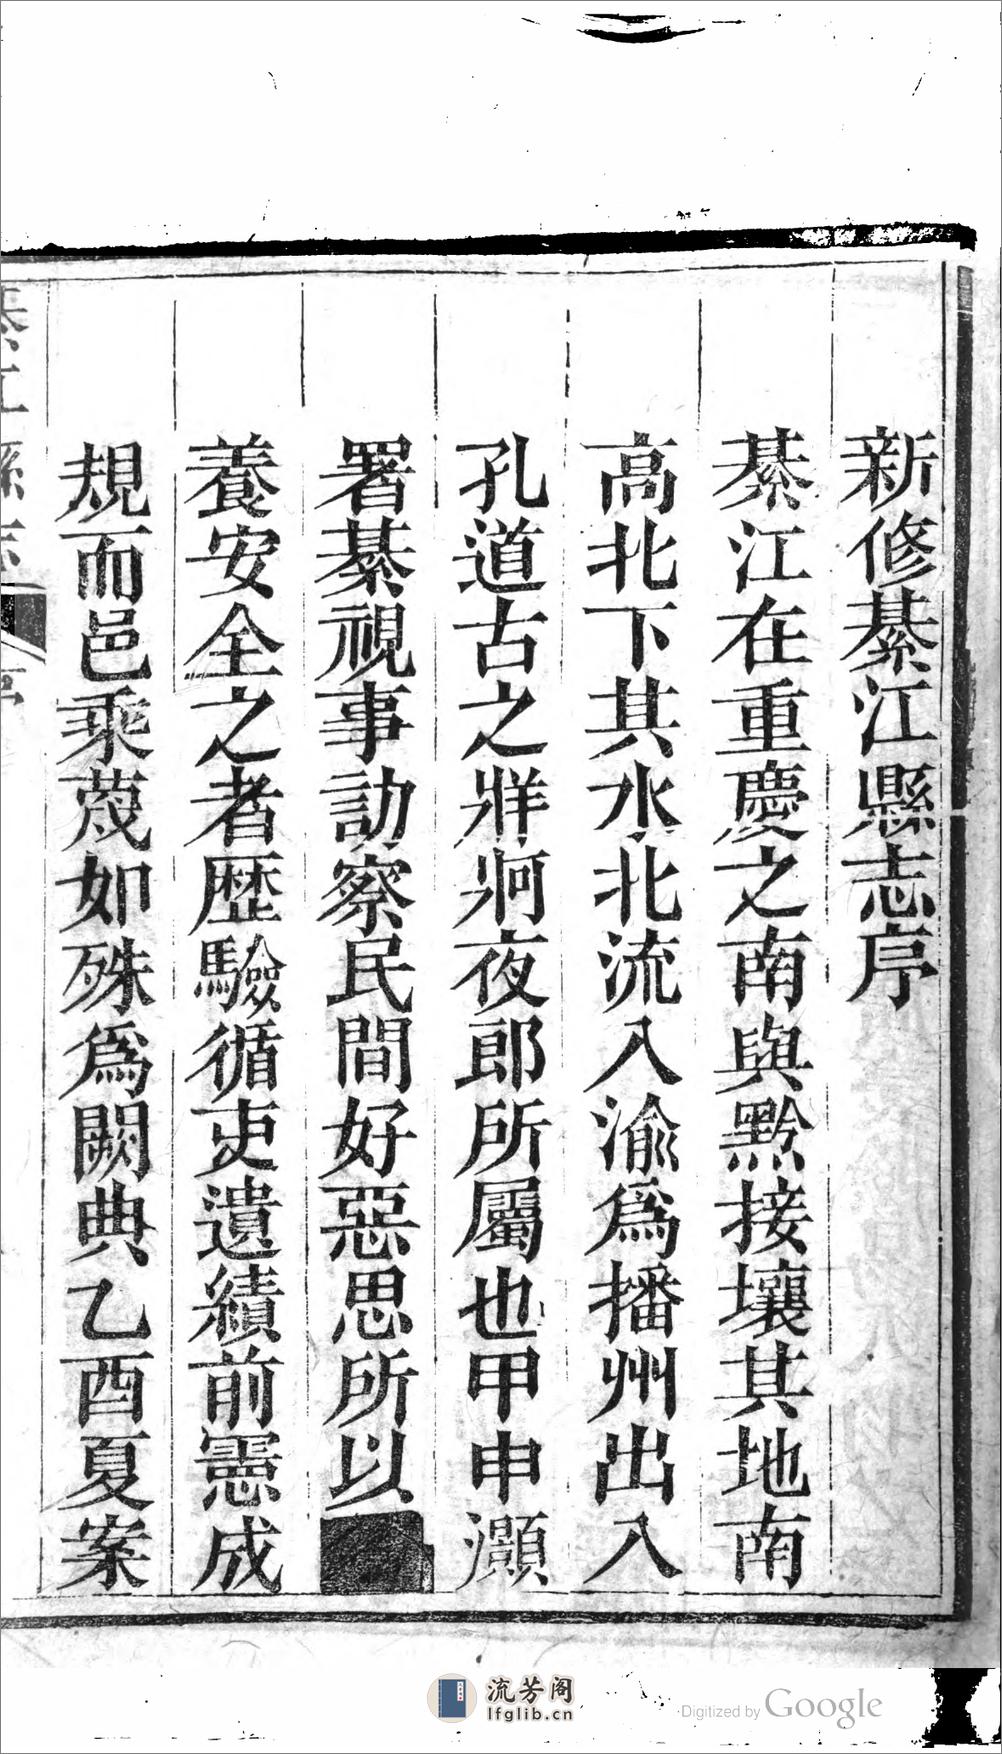 新修綦江縣志序
綦江在重慶之南與黔接壤其地南
高北下其水北流入渝爲播州出入
孔道古之牂牁夜郎所屬也甲申灝
署綦視事訪察民間好惡思所以
養安全之者歷驗循吏遺績前憲成
規而邑乘蔑如殊爲闕典乙酉夏案
綦江縣志
序
流芳阁
lfglib.cn
Digitized by Google